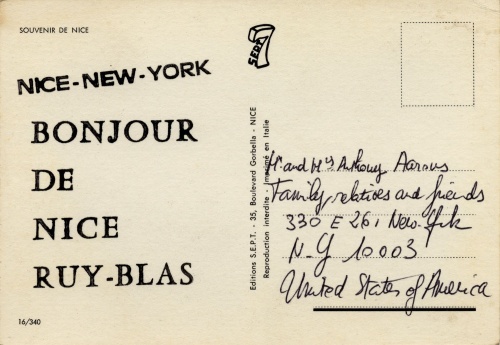 SOUVENIR DE NICE
NICE-NEW-YORK
BONJOUR
DE
NICE
RUY-BLAS
16/340
SEPT
Editions S.E.P.T. - 35, Boulevard Gorbella - NICE
Reproduction interdite - Imprimé en Italie
Mr and Mrs Anthony Aarons
Family, relatives and friends
330 E 26, New-York
N-Y 10003
United States of America